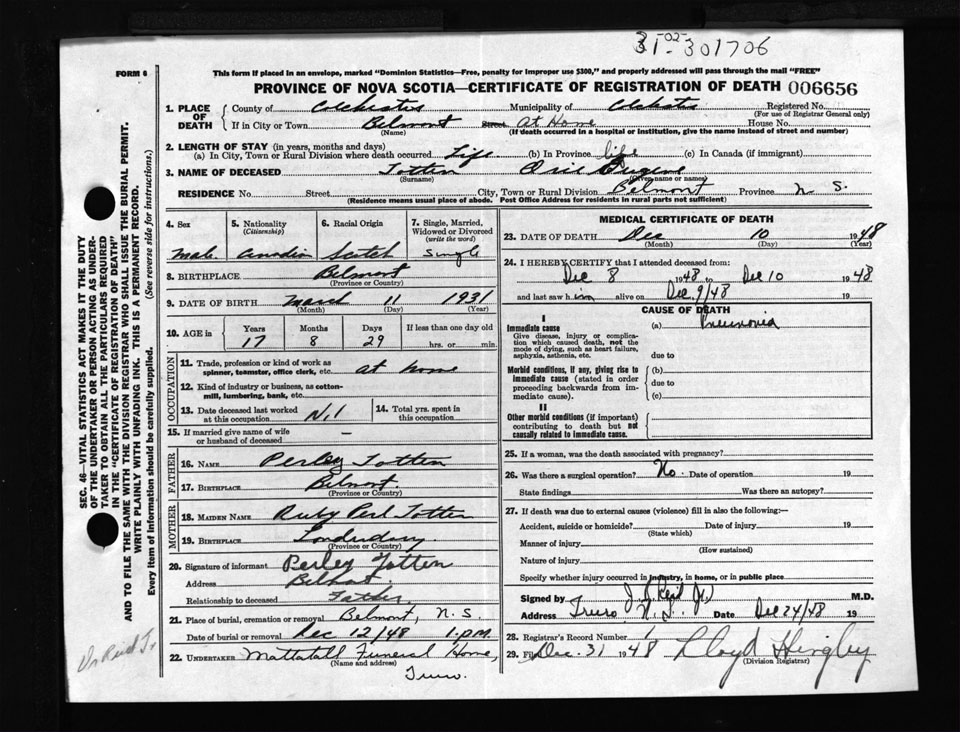 31-02-301706
FORM 6
This form if placed in an envelope, marked "Dominion Statistics—Free, penalty for improper use $300," and properly addressed will pass through the mail "FREE"
PROVINCE OF NOVA SCOTIA—CERTIFICATE OF REGISTRATION OF DEATH 006656
1. PLACE OF DEATH County of Colchester Municipality of Colchester Registered No.
(For use of Registrar General only)
If in City or Town Belmont Street At Home House No.
(Name) (If death occurred in a hospital or institution, give the name instead of street and number)
2. LENGTH OF STAY (in years, months and days)
(a) In City, Town or Rural Division where death occurred Life (b) In Province life (c) In Canada (if immigrant)
3. NAME OF DECEASED Totten Eugene
(Surname) (Given name or names)
RESIDENCE No. Street City, Town or Rural Division Belmont Province N S.
(Residence means usual place of abode. Post Office Address for residents in rural parts not sufficient)
4. Sex 5. Nationality (Citizenship) 6. Racial Origin 7. Single, Married, Widowed or Divorced (write the word)
Male Canadian Scotch Single
8. BIRTHPLACE Belmont
(Province or Country)
9. DATE OF BIRTH March 11 1931
(Month) (Day) (Year)
10. AGE in Years Months Days If less than one day old
17 8 29 hrs. or min.
OCCUPATION
11. Trade, profession or kind of work as spinner, teamster, office clerk, etc. at home
12. Kind of industry or business, as cotton-mill, lumbering, bank, etc.
13. Date deceased last worked at this occupation Nil 14. Total yrs. spent in this occupation
15. If married give name of wife or husband of deceased —
FATHER
16. NAME Perley Totten
17. BIRTHPLACE Belmont
(Province or Country)
MOTHER
18. MAIDEN NAME Ruby Perl Totten
19. BIRTHPLACE Londonderry
(Province or Country)
20. Signature of informant Perley Totten
Address Belmont
Relationship to deceased Father
21. Place of burial, cremation or removal Belmont, N.S.
Date of burial or removal Dec 12/48 1 p.m.
22. UNDERTAKER Mattatall Funeral Home,
(Name and address)
Truro.
MEDICAL CERTIFICATE OF DEATH
23. DATE OF DEATH Dec 10 1948
(Month) (Day) (Year)
24. I HEREBY CERTIFY that I attended deceased from:
Dec 8 1948 to Dec 10 1948
and last saw him alive on Dec 9/48 19
CAUSE OF DEATH
I
Immediate cause (a) Pneumonia
Give disease, injury or complication which caused death, not the mode of dying, such as heart failure, asphyxia, asthenia, etc.
due to
Morbid conditions, if any, giving rise to immediate cause (stated in order proceeding backwards from immediate cause).
(b)
due to
(c)
II
Other morbid conditions (if important) contributing to death but not causally related to immediate cause.
25. If a woman, was the death associated with pregnancy?
26. Was there a surgical operation? No. Date of operation 19
State findings Was there an autopsy?
27. If death was due to external causes (violence) fill in also the following:—
Accident, suicide or homicide? Date of injury 19
(State which)
Manner of injury
(How sustained)
Nature of injury
Specify whether injury occurred in industry, in home, or in public place
Signed by J. Reid Jr. M.D.
Address Truro N.S. Date Dec 24/48 19
28. Registrar's Record Number 1
29. Filed Dec. 31 1948 Lloyd Hingley
(Division Registrar)
SEC. 46—VITAL STATISTICS ACT MAKES IT THE DUTY
OF THE UNDERTAKER OR PERSON ACTING AS UNDER-
TAKER TO OBTAIN ALL THE PARTICULARS REQUIRED
IN THE "CERTIFICATE OF REGISTRATION OF DEATH"
AND TO FILE THE SAME WITH THE DIVISION REGISTRAR WHO SHALL ISSUE THE BURIAL PERMIT.
WRITE PLAINLY WITH UNFADING INK. THIS IS A PERMANENT RECORD.
Every item of information should be carefully supplied. (See reverse side for instructions.)
Dr Reid Jr